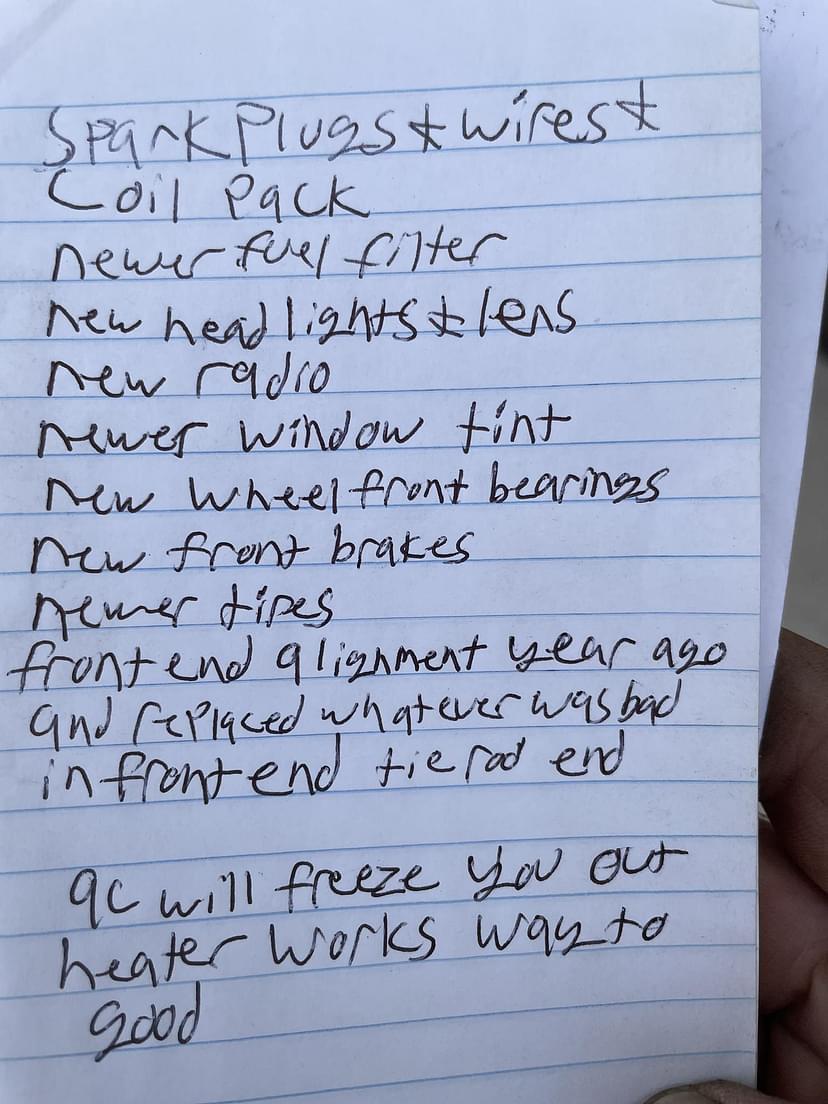 Spark Plugs & wires &
Coil Pack
newer fuel filter
new headlights & lens
new radio
newer window tint
new wheel front bearings
new front brakes
newer tires
front end alignment year ago
and replaced whatever was bad
in front end tie rod end
ac will freeze you out
heater works way to
good